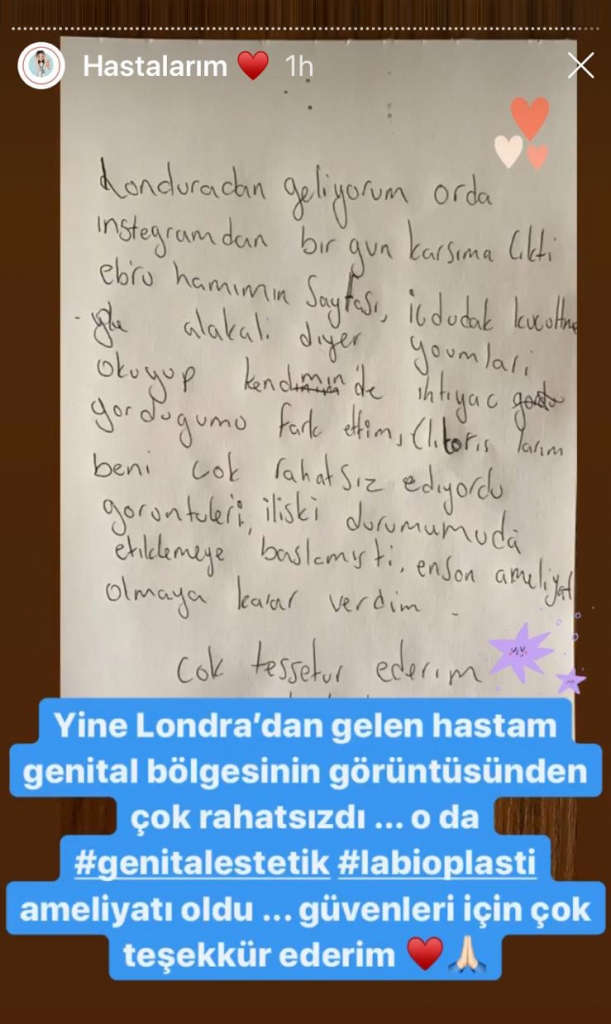 Hastalarım ❤️ 1h
Londuradan geliyorum orda
instegramdan bır gun karsıma Cıkti
ebru hanımın Sayfası, icdudak kucultme
- yle alakali diyer youmlari
okuyup kendımın'de ıhtıyac
gordugumo fark ettim, Clitoris larım
beni cok rahatsız edıyordu
goronruleri, iliski durumumuda
etıklemeye baslamıstı, enson ameliyat
olmaya karar verdim .
cok tessetur ederım
Yine Londra’dan gelen hastam
genital bölgesinin görüntüsünden
çok rahatsızdı ... o da
#genitalestetik #labioplasti
ameliyatı oldu ... güvenleri için çok
teşekkür ederim ♥️🙏🏻